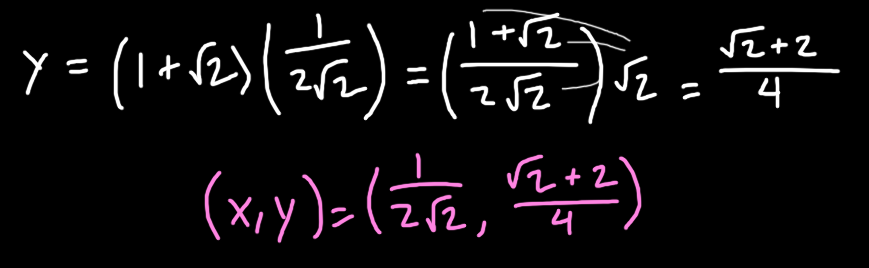 y = (1+√2)(1/(2√2)) = ((1+√2)/(2√2))√2 = (√2+2)/4
(x,y)=(1/(2√2), (√2+2)/4)